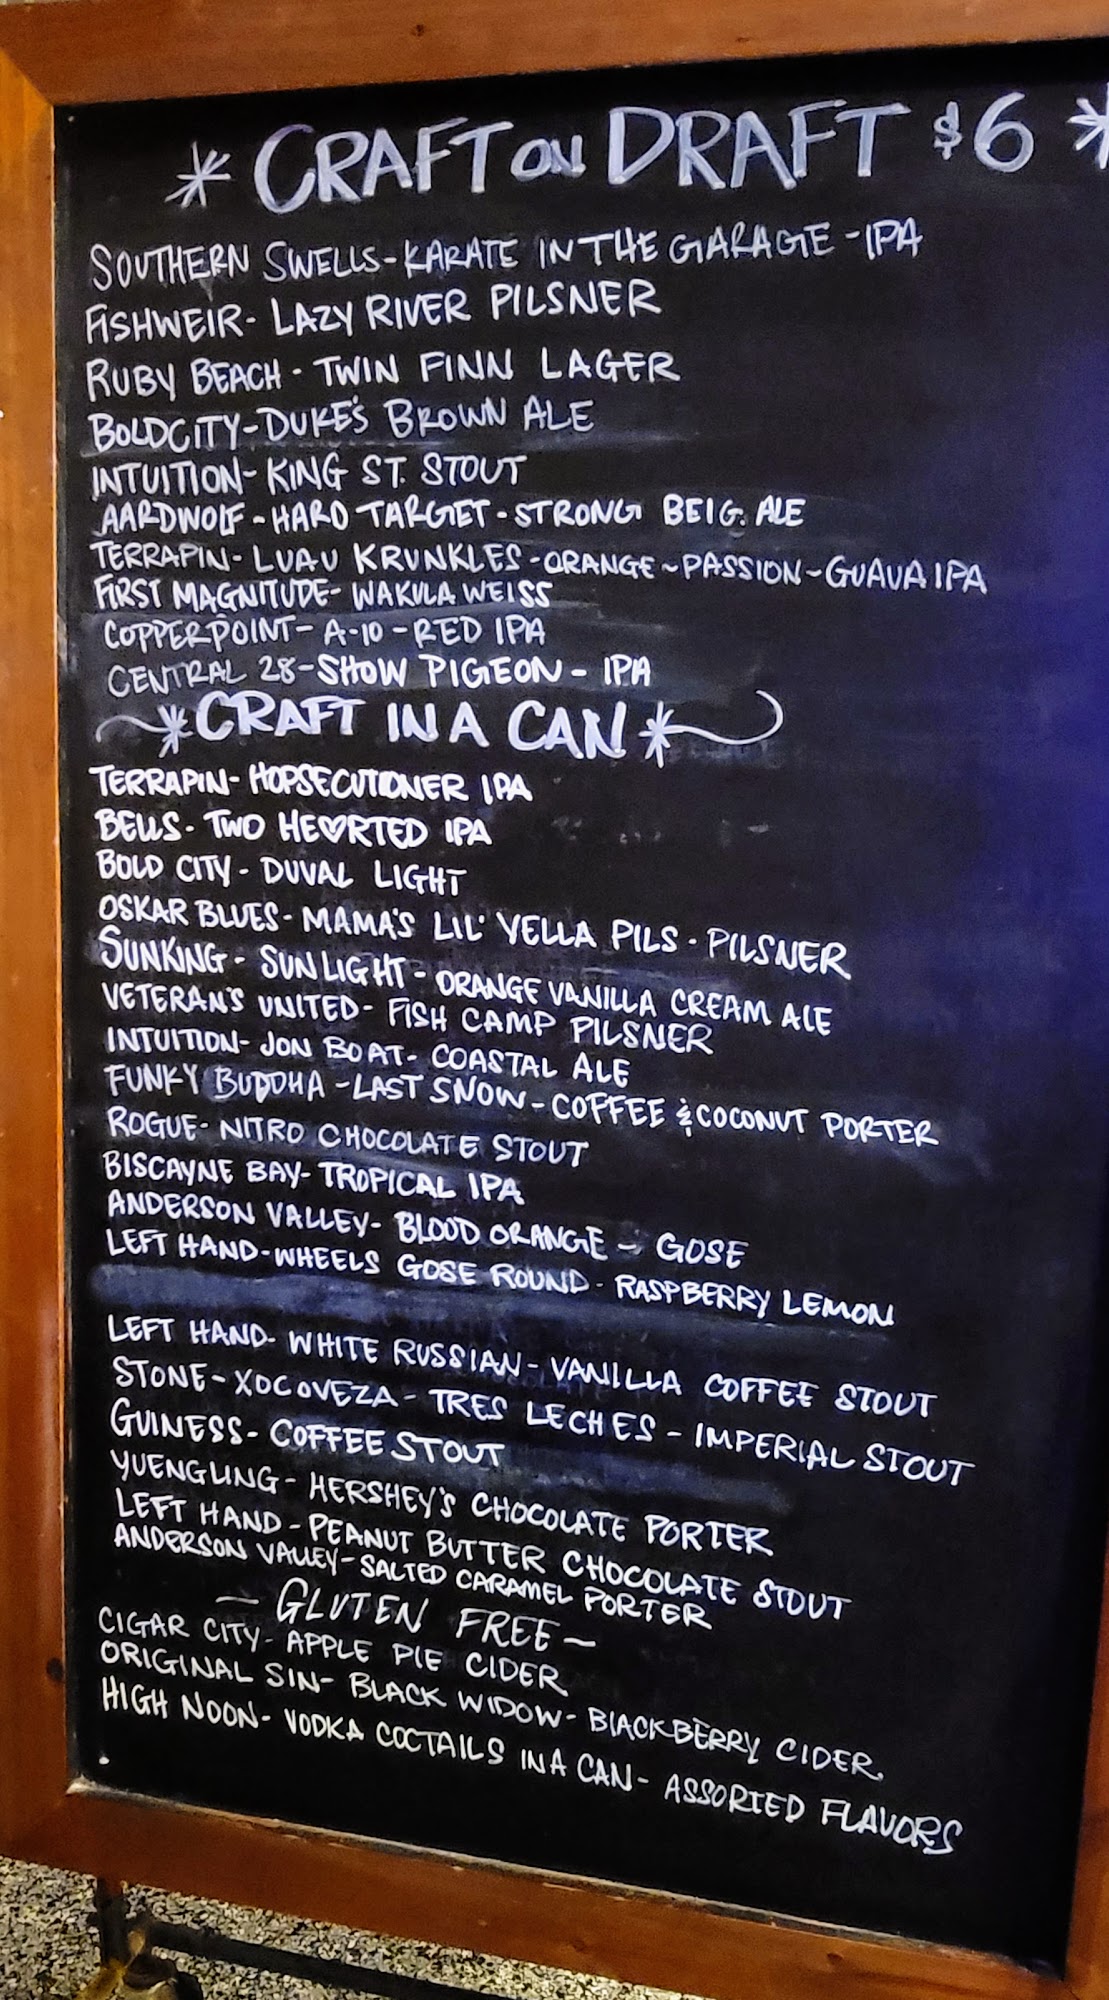 * CRAFT ON DRAFT $6 *
SOUTHERN SWELLS - KARATE IN THE GARAGE - IPA
FISHWEIR - LAZY RIVER PILSNER
RUBY BEACH - TWIN FINN LAGER
BOLDCITY - DUKE'S BROWN ALE
INTUITION - KING ST. STOUT
AARDWOLF - HARD TARGET - STRONG BELG. ALE
TERRAPIN - LUAU KRUNKLES - ORANGE ~ PASSION ~ GUAVA IPA
FIRST MAGNITUDE - WAKULA WEISS
COPPERPOINT - A-10 - RED IPA
CENTRAL 28 - SHOW PIGEON - IPA
*CRAFT IN A CAN*
TERRAPIN - HOPSECUTIONER IPA
BELLS - TWO HE♥RTED IPA
BOLD CITY - DUVAL LIGHT
OSKAR BLUES - MAMA'S LIL' YELLA PILS - PILSNER
SUNKING - SUNLIGHT - ORANGE VANILLA CREAM ALE
VETERAN'S UNITED - FISH CAMP PILSNER
INTUITION - JON BOAT - COASTAL ALE
FUNKY BUDDHA - LAST SNOW - COFFEE & COCONUT PORTER
ROGUE - NITRO CHOCOLATE STOUT
BISCAYNE BAY - TROPICAL IPA
ANDERSON VALLEY - BLOOD ORANGE - GOSE
LEFT HAND - WHEELS GOSE ROUND - RASPBERRY LEMON
LEFT HAND - WHITE RUSSIAN - VANILLA COFFEE STOUT
STONE - XOCOVEZA - TRES LECHES - IMPERIAL STOUT
GUINESS - COFFEE STOUT
YUENGLING - HERSHEY'S CHOCOLATE PORTER
LEFT HAND - PEANUT BUTTER CHOCOLATE STOUT
ANDERSON VALLEY - SALTED CARAMEL PORTER
- GLUTEN FREE -
CIGAR CITY - APPLE PIE CIDER
ORIGINAL SIN - BLACK WIDOW - BLACKBERRY CIDER
HIGH NOON - VODKA COCTAILS IN A CAN - ASSORTED FLAVORS